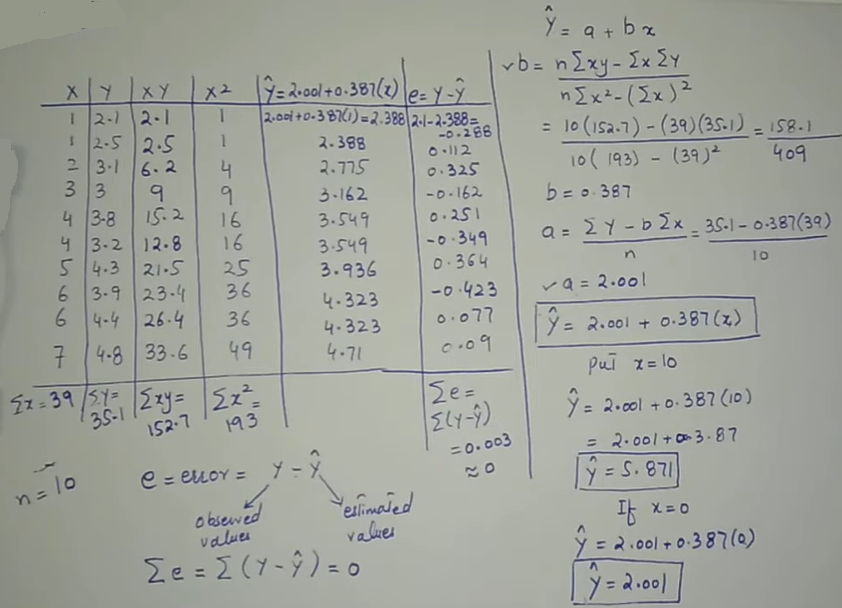 X | Y | XY | X2 | Ŷ=2.001+0.387(x) | e=Y-Ŷ
1 | 2.1 | 2.1 | 1 | 2.001+0.387(1)=2.388 | 2.1-2.388= -0.288
1 | 2.5 | 2.5 | 1 | 2.388 | 0.112
2 | 3.1 | 6.2 | 4 | 2.775 | 0.325
3 | 3 | 9 | 9 | 3.162 | -0.162
4 | 3.8 | 15.2 | 16 | 3.549 | 0.251
4 | 3.2 | 12.8 | 16 | 3.549 | -0.349
5 | 4.3 | 21.5 | 25 | 3.936 | 0.364
6 | 3.9 | 23.4 | 36 | 4.323 | -0.423
6 | 4.4 | 26.4 | 36 | 4.323 | 0.077
7 | 4.8 | 33.6 | 49 | 4.71 | 0.09
Σx=39 | ΣY=35.1 | Σxy=152.7 | Σx²=193 | | Σe=
Σ(Y-Ŷ)
=0.003
≈0
n=10
e = error = Y - Ŷ
observed values
estimated values
Σe = Σ(Y-Ŷ) = 0
Ŷ = a + bx
✓b = nΣxy - ΣxΣY / nΣx² - (Σx)²
= 10(152.7) - (39)(35.1) / 10(193) - (39)² = 158.1 / 409
b = 0.387
a = ΣY - bΣx / n = 35.1 - 0.387(39) / 10
✓a = 2.001
Ŷ = 2.001 + 0.387(x)
put x=10
Ŷ = 2.001 + 0.387(10)
= 2.001 + 3.87
Ŷ = 5.871
If x=0
Ŷ = 2.001 + 0.387(0)
Ŷ = 2.001